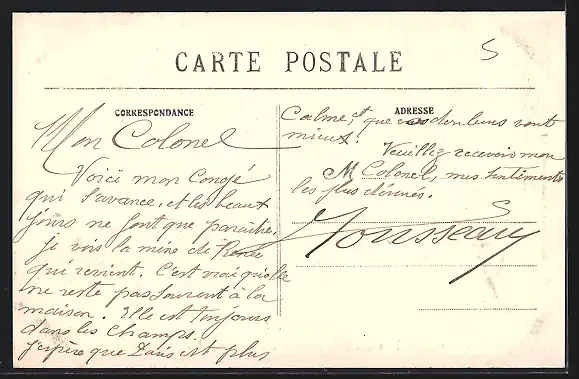 CARTE POSTALE
S
CORRESPONDANCE
Mon Colonel
Voici mon Congé
qui s'avance, et les beaux
jours ne font que paraitre.
Je vois la mine de Renée
qui revient. C'est vrai qu'elle
ne reste pas souvent à la
maison. Elle est toujours
dans les Champs.
J'espère que est plus
ADRESSE
Calme, et que vos douleurs vont
mieux.
Veuillez recevoir mon
M Colonel, mes sentiments
les plus dévoués.
S
Mousseau